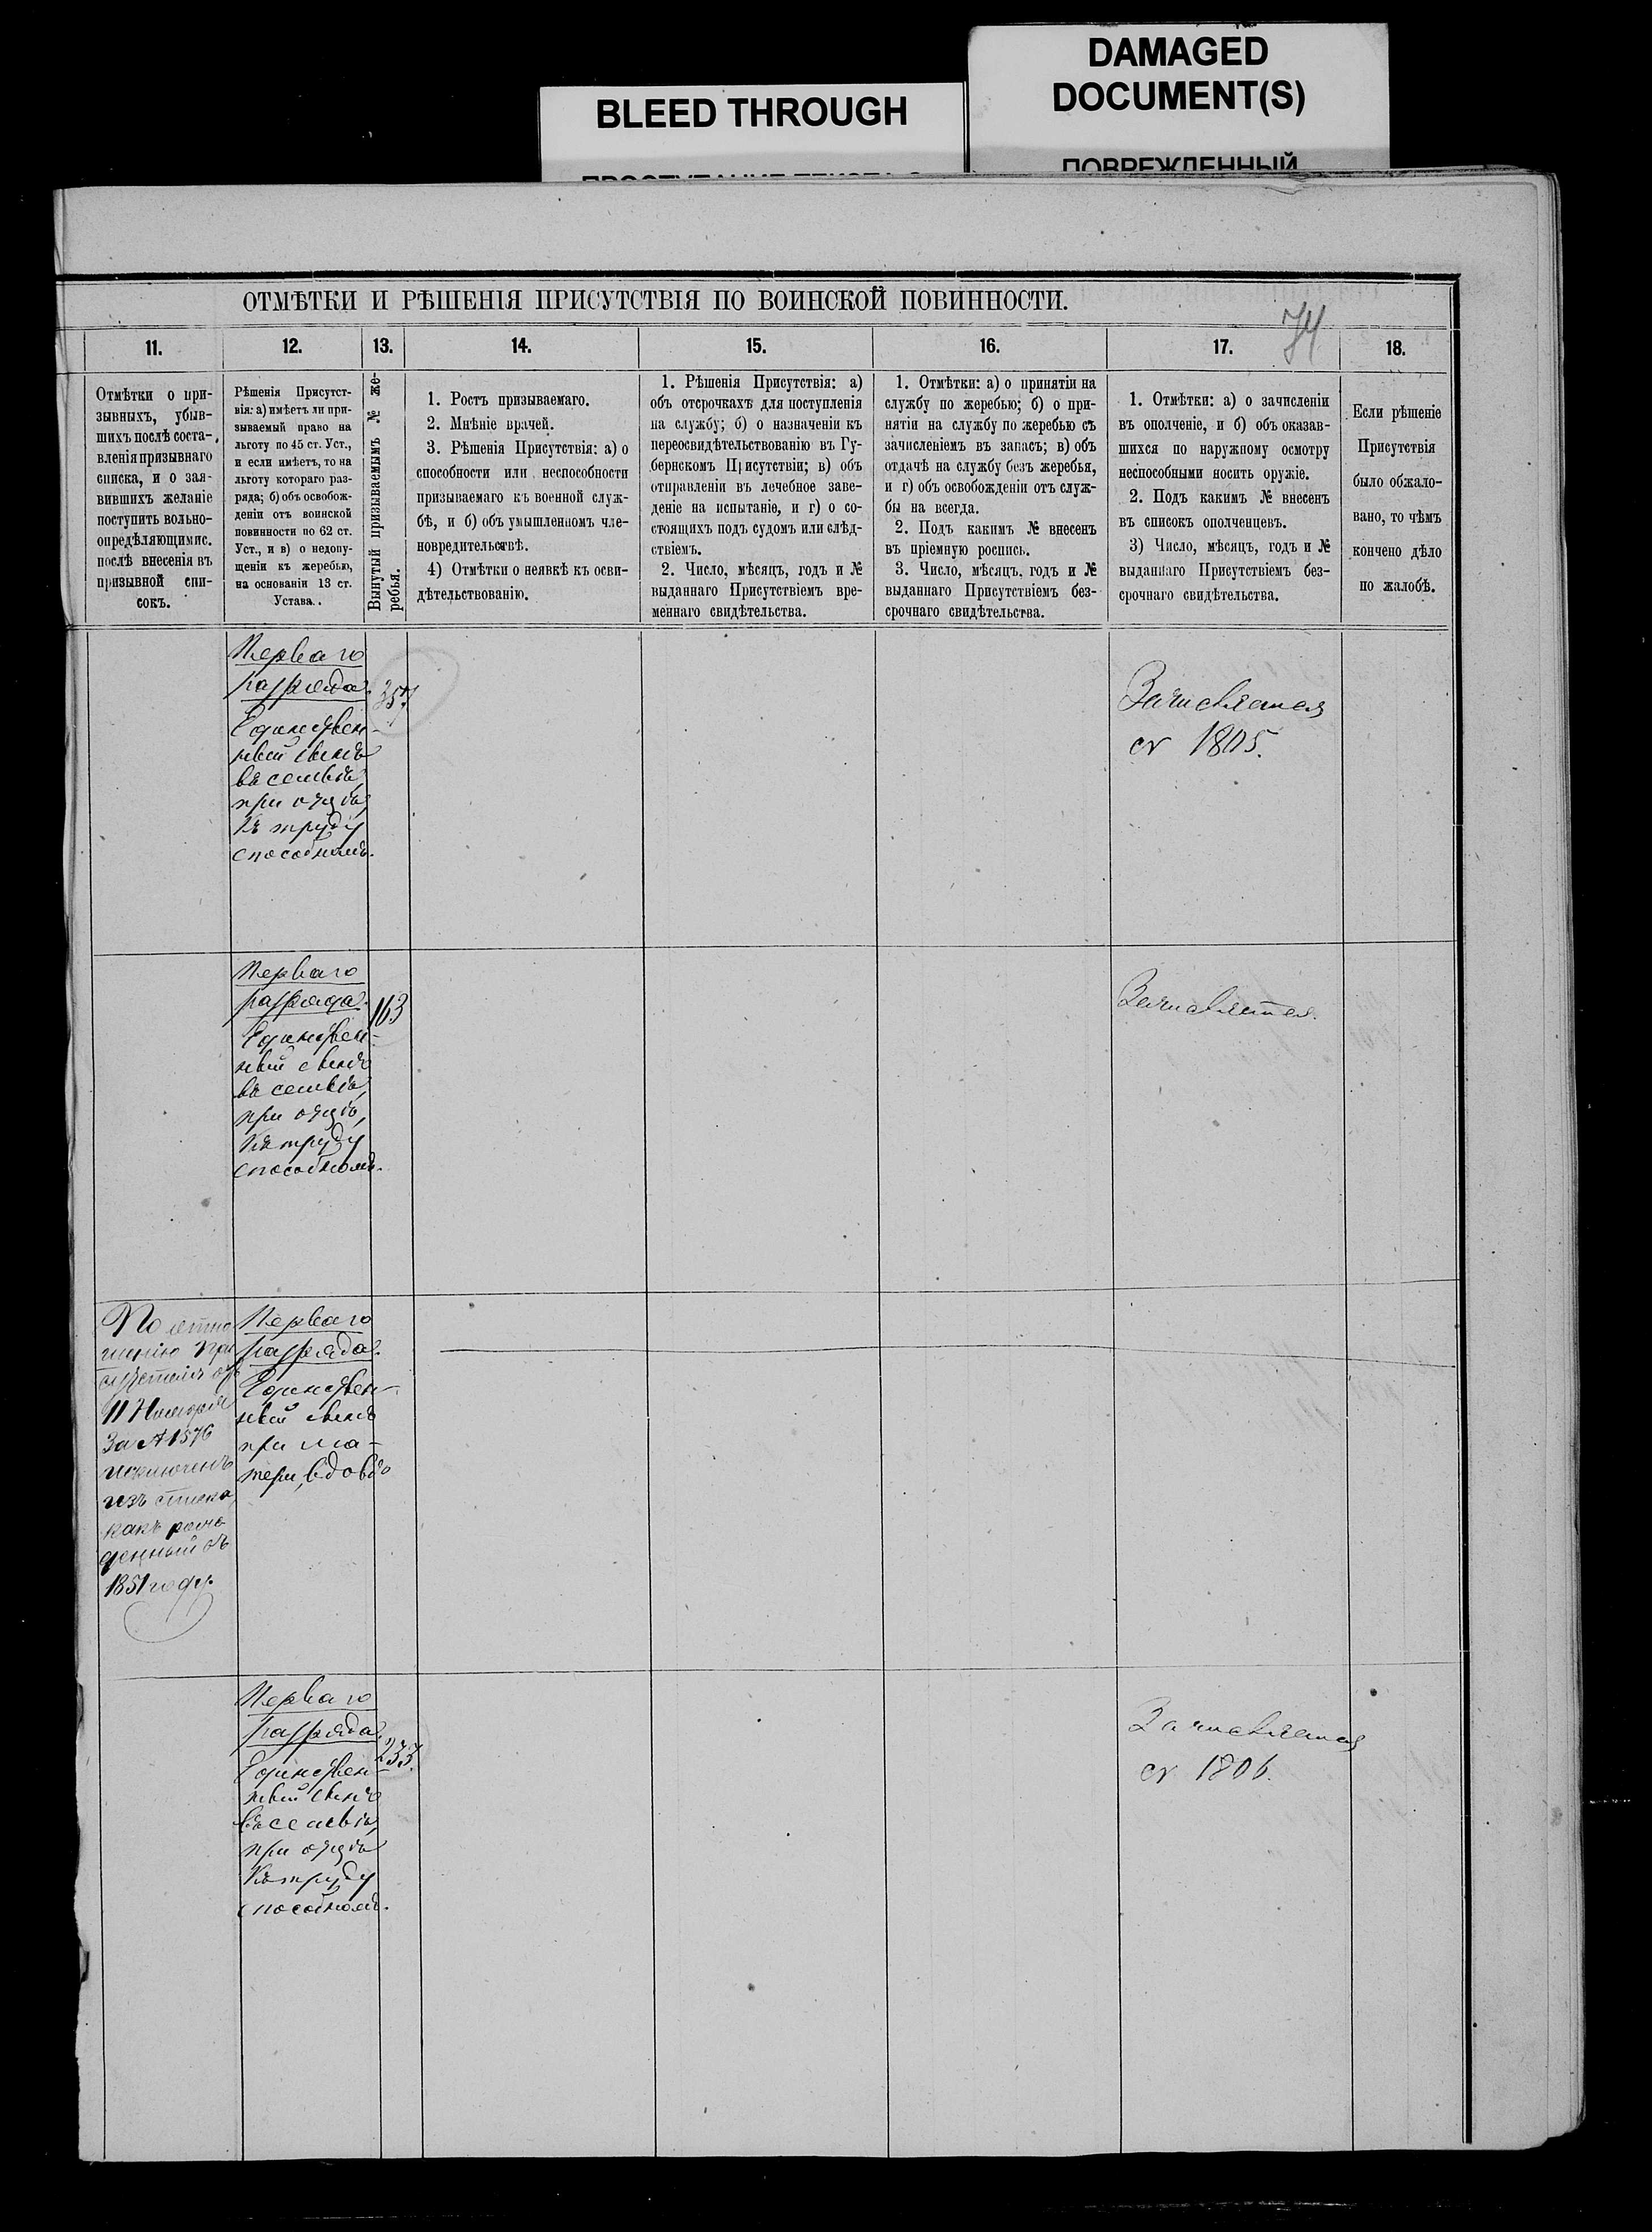 DAMAGED
DOCUMENT(S)
ПОВРЕЖДЕННЫЙ
BLEED THROUGH
ОТМѢТКИ И РѢШЕНІЯ ПРИСУТСТВІЯ ПО ВОИНСКОЙ ПОВИННОСТИ.
74
11.
12.
13.
14.
15.
16.
17.
18.
Отмѣтки о при-
зывныхъ, убыв-
шихъ послѣ соста-
вленія призывнаго
списка, и о зая-
вившихъ желаніе
поступить вольно-
опредѣляющимис.
послѣ внесенія въ
призывной спи-
сокъ.
Рѣшенія Присутст-
вія: а) имѣетъ ли при-
зываемый право на
льготу по 45 ст. Уст.,
и если имѣетъ, то на
льготу котораго раз-
ряда; б) объ освобож-
деніи отъ воинской
повинности по 62 ст.
Уст., и в) о недопу-
щеніи къ жеребью,
на основаніи 13 ст.
Устава.
Вынутый призываемымъ № же-
ребья.
1. Ростъ призываемаго.
2. Мнѣніе врачей.
3. Рѣшенія Присутствія: а) о
способности или неспособности
призываемаго къ военной служ-
бѣ, и б) объ умышленномъ чле-
новредительствѣ.
4) Отмѣтки о неявкѣ къ осви-
дѣтельствованію.
1. Рѣшенія Присутствія: а)
объ отсрочкахъ для поступленія
на службу; б) о назначеніи къ
переосвидѣтельствованію въ Гу-
бернскомъ Присутствіи; в) объ
отправленіи въ лечебное заве-
деніе на испытаніе, и г) о со-
стоящихъ подъ судомъ или слѣд-
ствіемъ.
2. Число, мѣсяцъ, годъ и №
выданнаго Присутствіемъ вре-
меннаго свидѣтельства.
1. Отмѣтки: а) о принятіи на
службу по жеребью; б) о при-
нятіи на службу по жеребью съ
зачисленіемъ въ запасъ; в) объ
отдачѣ на службу безъ жеребья,
и г) объ освобожденіи отъ служ-
бы на всегда.
2. Подъ какимъ № внесенъ
въ пріемную роспись.
3. Число, мѣсяцъ, годъ и №
выданнаго Присутствіемъ без-
срочнаго свидѣтельства.
1. Отмѣтки: а) о зачисленіи
въ ополченіе, и б) объ оказав-
шихся по наружному осмотру
неспособными носить оружіе.
2. Подъ какимъ № внесенъ
въ списокъ ополченцевъ.
3) Число, мѣсяцъ, годъ и №
выданнаго Присутствіемъ без-
срочнаго свидѣтельства.
Если рѣшеніе
Присутствія
было обжало-
вано, то чѣмъ
кончено дѣло
по жалобѣ.
Перваго
разряда.
Единствен-
ный сынъ
въ семьѣ,
при отцѣ,
къ труду
способномъ.
357
Зачисляется
1805.
Перваго
разряда.
Единствен-
ный сынъ
въ семьѣ,
при отцѣ,
къ труду
способномъ.
163
Зачисляется.
По отно
шенію При
сутствія отъ
11 Ноября
За № 1576
исключенъ
изъ списка
какъ рож
денный въ
1851 году.
Перваго
разряда.
Единствен-
ный сынъ
при ма-
тери, вдовѣ
Перваго
разряда.
Единствен-
ный сынъ
въ семьѣ,
при отцѣ
къ труду
способномъ.
233.
Зачисляется
1806.